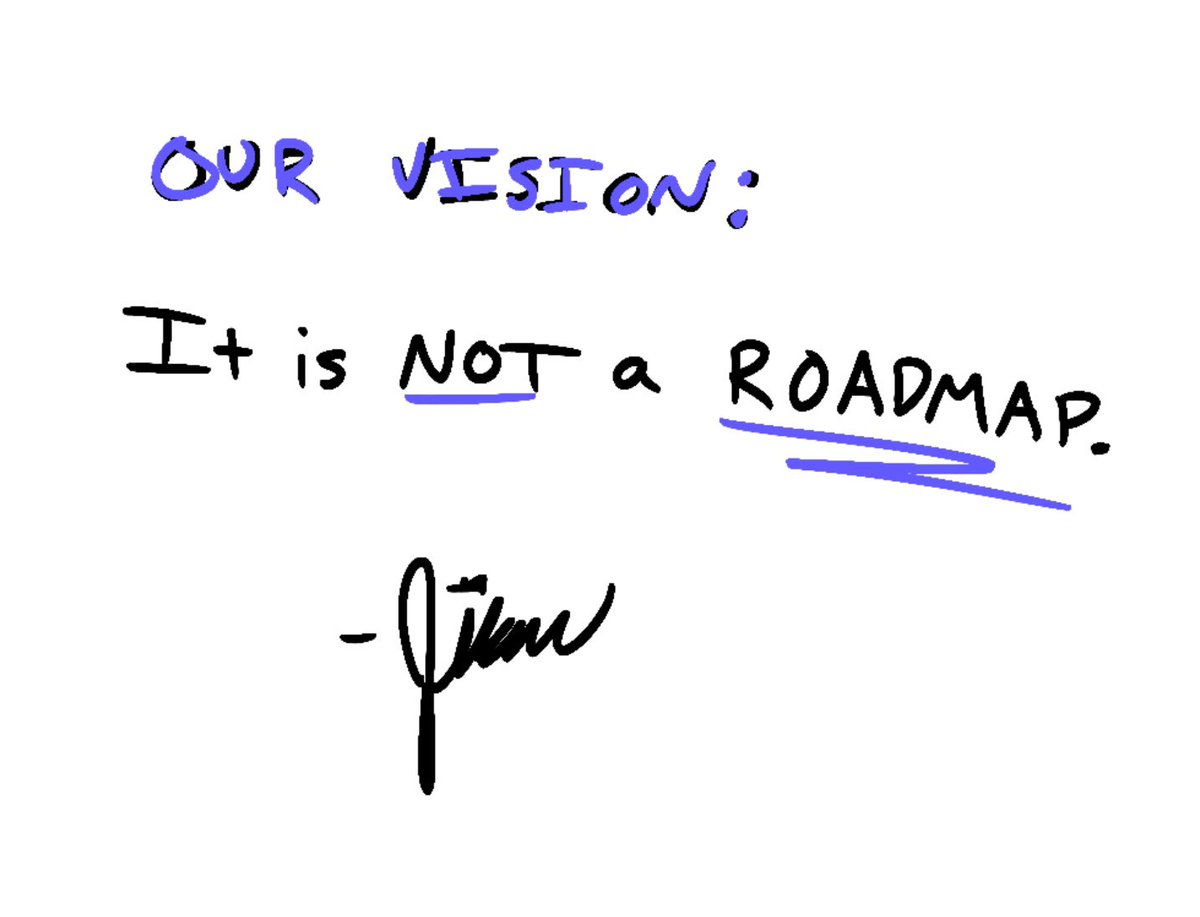 OUR VISION:
It is NOT a ROADMAP.